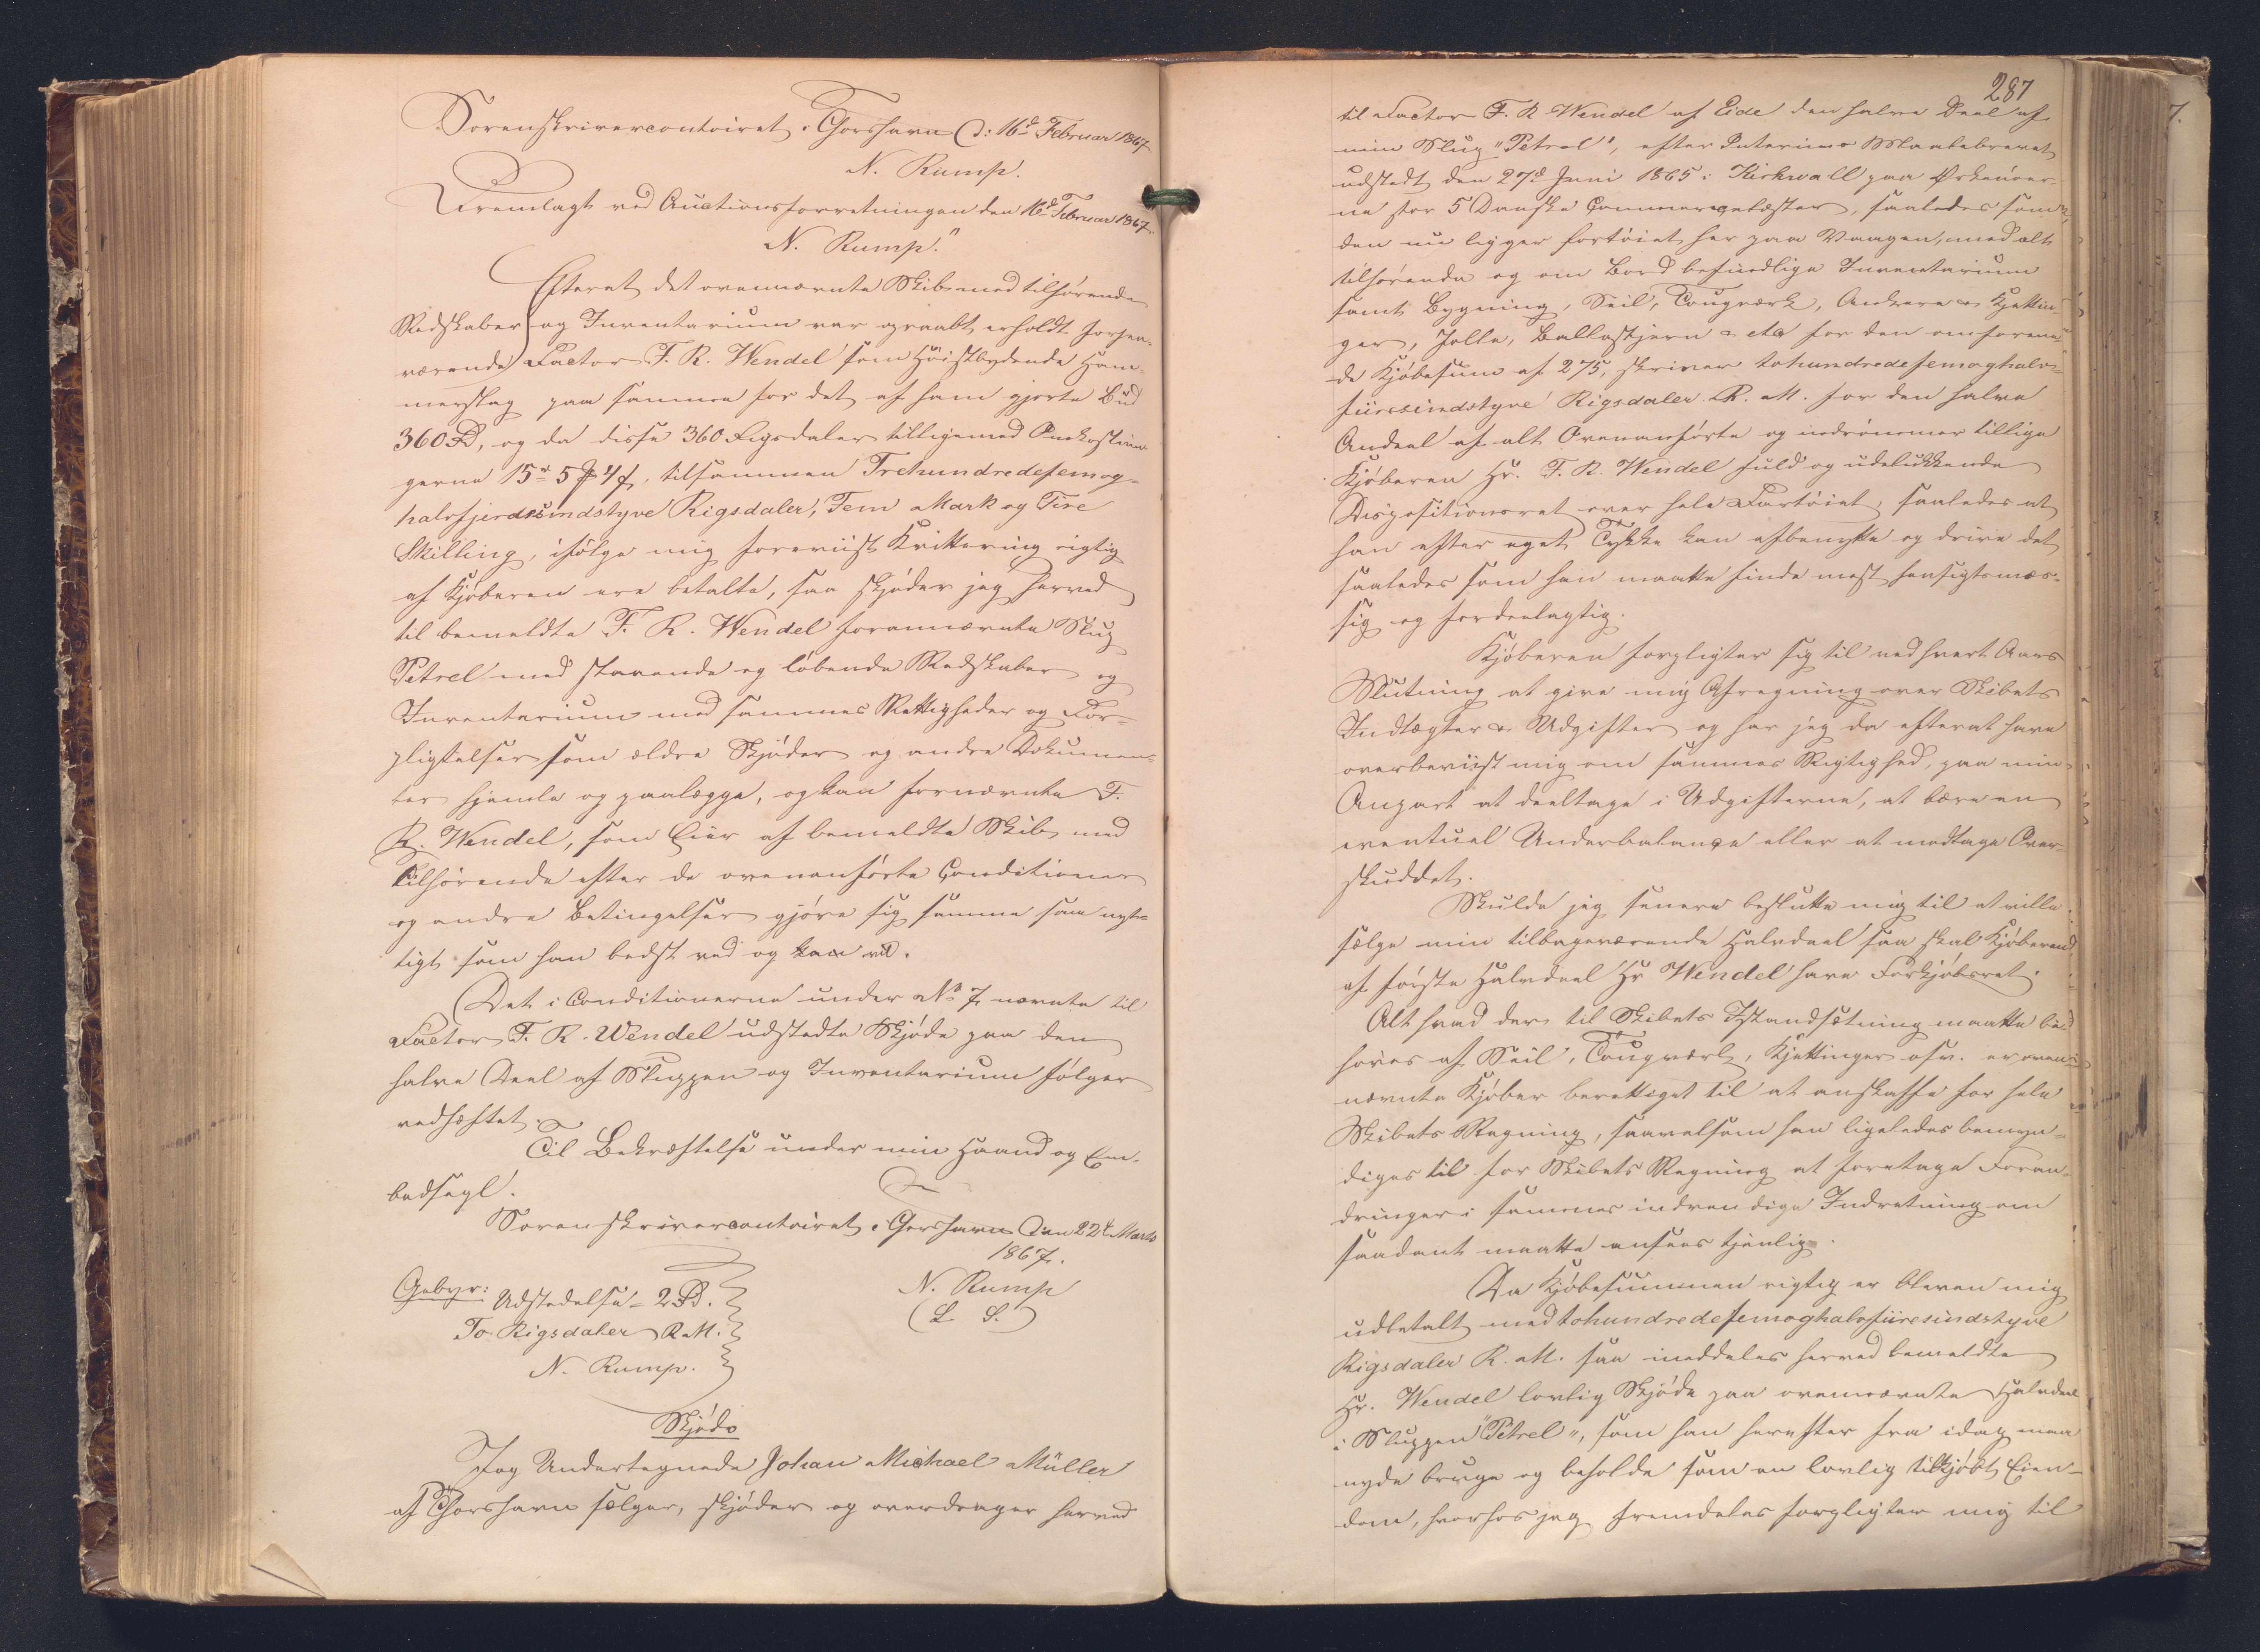 Sorenskrivercontoiret i Thorshavn d: 16d Februar 1867.
N. Rump.
Fremlagt ved Auctionsforretningen den 16d Februar 1867.
N. Rump."
Efterat det ovennævnte Skib med tilhørende
Redskaber og Inventarium var opraabt erholdt forhen-
værende Factor F. R. Wendel som Høistbydende Ham-
merslag paa samme for det af ham gjorte Bud
360 Rd, og da disse 360 Rigsdaler tilligemed Omkostnin-
gerne 15rd 5 # 4 s, tilsammen Trehundredefemog-
halvfjerdsindstyve Rigsdaler, Fem Mark og Fire
Skilling, ifølge mig foreviist Kvittering rigtig
af Kjøberen ere betalte, saa skjøder jeg herved
til bemeldte F. R. Wendel forannævnte Slup
Petrel med staaende og løbende Redskaber og
Inventarium med sammes Rettigheder og For-
pligtelser som ældre Skjøder og andre Dokumen-
ter hjemle og paalægge, og kan fornævnte F.
R. Wendel, som Eier af bemeldte Skib med
Tilhørende efter de ovenanførte Conditioner
og andre Betingelser gjøre sig samme saa nyt-
tigt som han bedst ved og kan vil.
Det i Conditionerne under No 7 nævnte til
Factor F. R. Wendel udstedte Skjøde paa den
halve Deel af Sluppen og Inventarium følger
vedhæftet.
Til Bekræftelse under min Haand og Em-
bedsegl.
Sorenskrivercontoiret i Thorshavn den 22d Marts
1867.
Gebyr: Udstedelse - 2 Rd.
N. Rump
To Rigsdaler R. M.
(L. S.)
N. Rump.
Skjøde
Jeg Undertegnede Johan Michael Müller
af Thorshavn sælger, skjøder og overdrager herved
287
til Factor F. R Wendel af Eide den halve Deel af
min Slup "Petrel", efter Interims Maalebrevet
udstedt den 27d Juni 1865 i Kirkwall paa Ørkenøer-
ne stor 5 Danske Commercelæster, saaledes som
den nu ligger fortøiet her paa Vaagen, med alt
tilhørende og om Bord befindlige Inventarium
samt Bygning, Seil, Tougværk, Ankere & Kjettin-
ger, Jolle, Ballastjern & etc for den omforene-
de Kjøbesum af 275, skriver tohundredefemoghalv-
fiiresindstyve Rigsdaler R. M. for den halve
Andeel af alt Ovenanførte og indrømmer tillige
Kjøberen Hr. F. R. Wendel fuld og udelukkende
Dispositionsret over hele Fartøiet, saaledes at
han efter eget Tykke kan afbenytte og drive det
saaledes som han maatte finde mest hensigtsmæs-
sig og fordeelagtig.
Kjøberen forpligter sig til ved hvert Aars
Slutning at give mig Afregning over Skibets
Indtægter & Udgifter og har jeg da efterat have
overbeviist mig om sammes Rigtighed, paa min
Anpart at deeltage i Udgifterne, at bære en
eventuel Underbalance eller at modtage Over-
skuddet.
Skulde jeg senere beslutte mig til at ville
sælge min tilbageværende Halvdeel saa skal Kjøberen
af første Halvdeel Hr Wendel have Forkjøbsret.
Alt hvad der til Skibets Istandsætning maatte be-
høves af Seil, Tougværk, Kjettinger osv. er oven-
nævnte Kjøber berettiget til at anskaffe for hele
Skibets Regning, saavelsom han ligeledes bemyn-
diges til for Skibets Regning at foretage Foran-
dringer i sammes indvendige Indretning om
saadant maatte ansees tjenlig.
Da Kjøbesummen rigtig er bleven mig
udbetalt med tohundredefemoghalvfiiresindstyve
Rigsdaler R. M. saa meddeles herved bemeldte
Hr. Wendel lovlig Skjøde paa ovennævnte Halvdeel
i Sluppen "Petrel", som han herefter fra idag maa
nyde bruge og beholde som en lovlig tilkjøbt Eien-
dom, hvorhos jeg fremdeles forpligter mig til